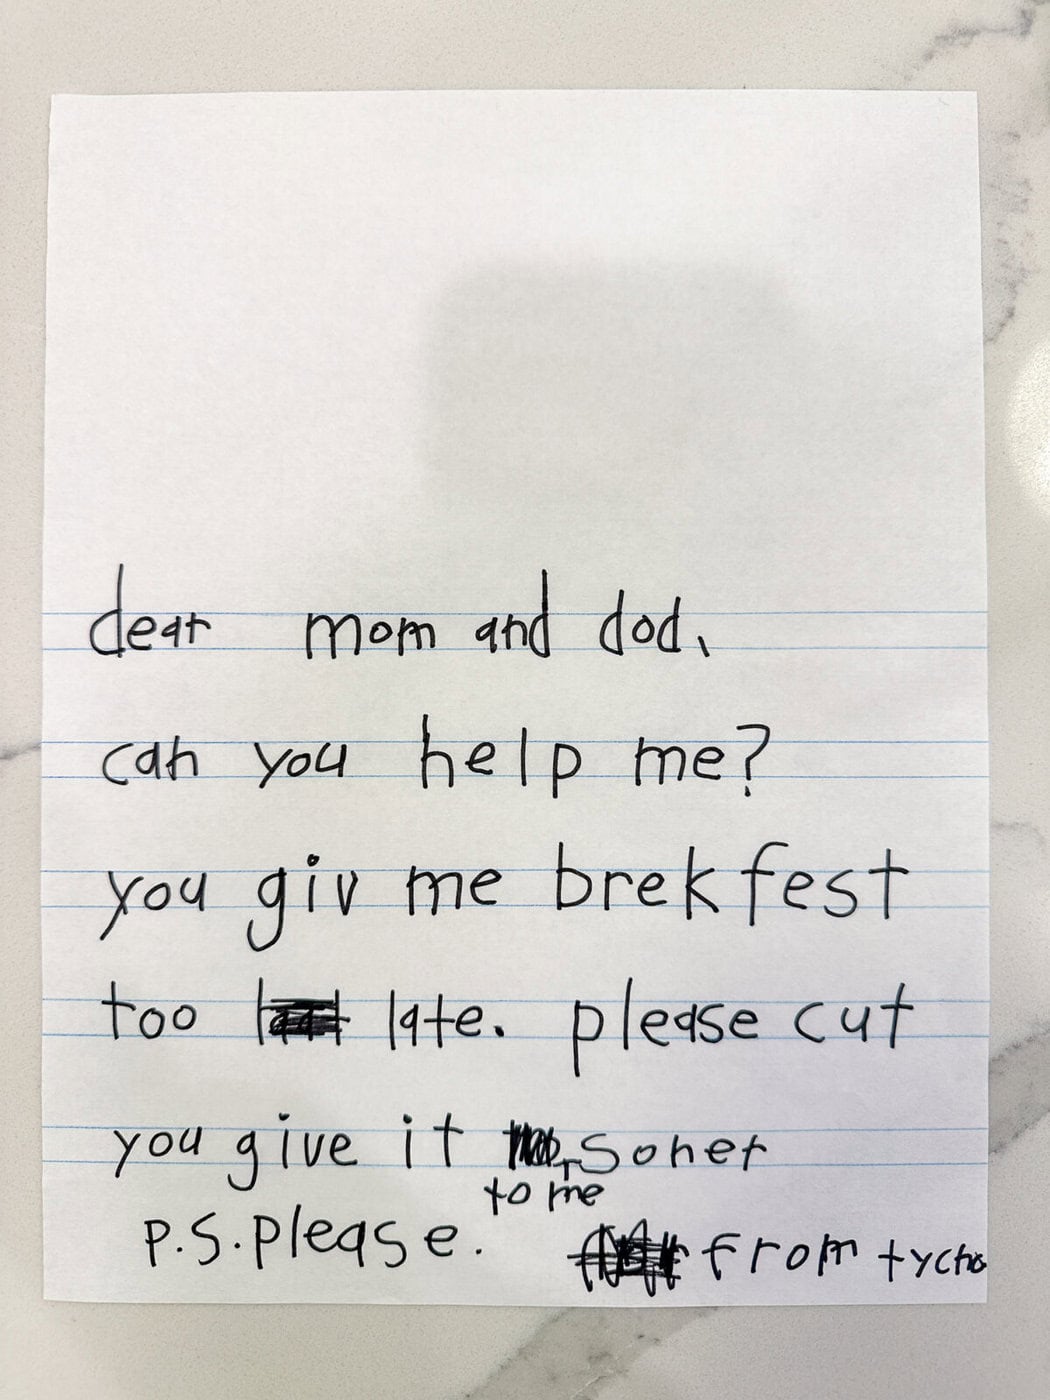 dear mom and dod,
can you help me?
you giv me brekfest
too late. please cut
you give it soner
to me
p.s. please. from tycho